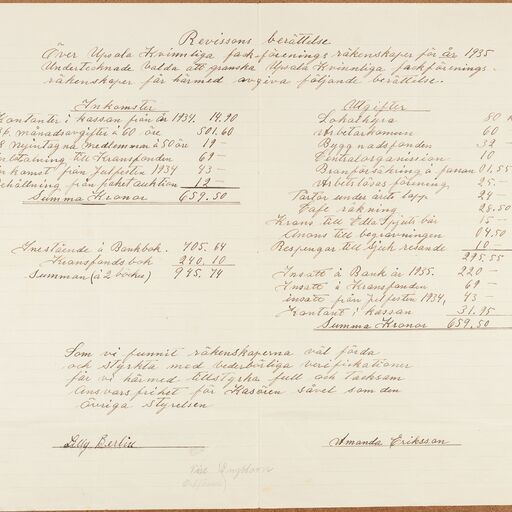 Revissons berättelse
Över Upsala Kvinnliga fackförenings räkenskaper för år 1935
Undertecknade valda att granska Upsala Kvinnliga fackförenings-
räkenskaper får härmed avgiva följande berättelse.
Inkomster
Kontanter i kassan från år 1934. 14.90
månadsavgifter à 60 öre 501.60
nyintagna medlemmar à 50 öre 19 —
inbetalning till Kransfonden 69 —
inkomst från Julfesten 1934 43 —
Behållning från paketauktion 12 —
Summa Kronor 659.50
Innestående å Bankbok. 705.64
Kransfonds bok 240.10
Summan (å 2 böcker) 945.74
Utgifter
Lokalhyra 80
Arbetarkomun 60
Byggnadsfonden 32
Centralorganission 10
Branförsäkring å fanan 01.55
Arbetslöses förening 25.—
Pärlor under årets lopp 24
Cafe räkning 28.50
Krans till Edla bår 21 —
Anons till begravningen 04.50
Respengar till Sjuk resande 10 —
295.55
Insatt å Bank år 1935. 220 —
Insatt å Kransfonden 69 —
insatt från Julfesten 1934, 43 —
Kontant i kassan 31.95
Summa Kronor 659.50
Som vi funnit räkenskaperna väl förda
och styrkta med vederbörliga verifikationer
får vi härmed tillstyrka full och tacksam
Ansvarsfrihet för Kasören såvel som den
övriga styrelsen
Lilly Berlin
Amanda Eriksson